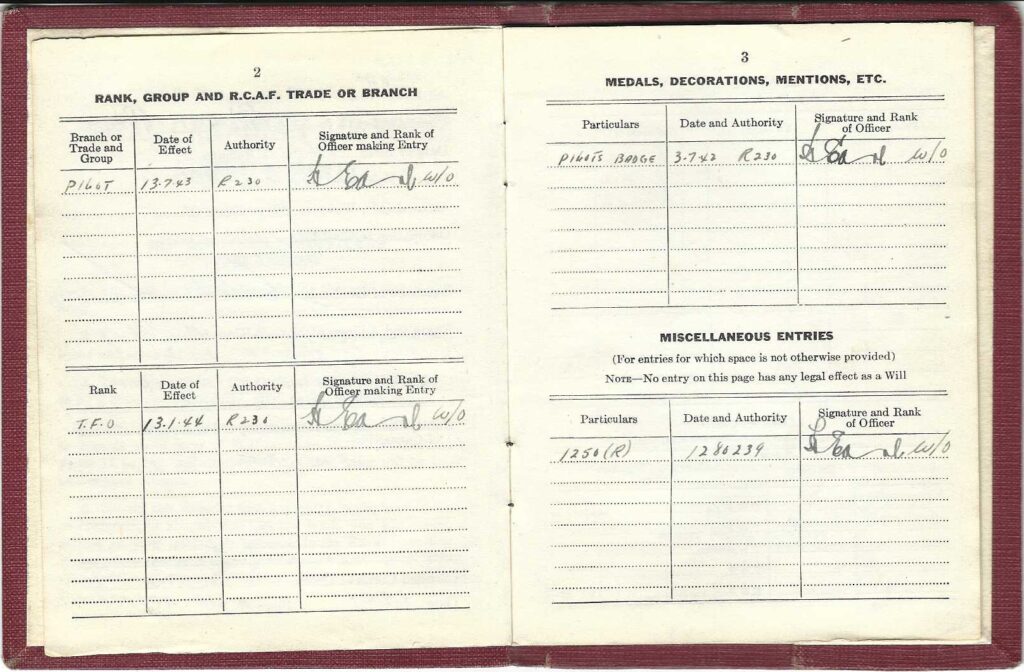 2
RANK, GROUP AND R.C.A.F. TRADE OR BRANCH
Branch or Trade and Group
Date of Effect
Authority
Signature and Rank of Officer making Entry
PILOT 13.7.43 R230 W/O
Rank
Date of Effect
Authority
Signature and Rank of Officer making Entry
T.F.O 13.1.44 R230 W/O
3
MEDALS, DECORATIONS, MENTIONS, ETC.
Particulars
Date and Authority
Signature and Rank of Officer
PILOTS BADGE 3.7.42 R230 W/O
MISCELLANEOUS ENTRIES
(For entries for which space is not otherwise provided)
NOTE—No entry on this page has any legal effect as a Will
Particulars
Date and Authority
Signature and Rank of Officer
1250(R) 1280239 W/O